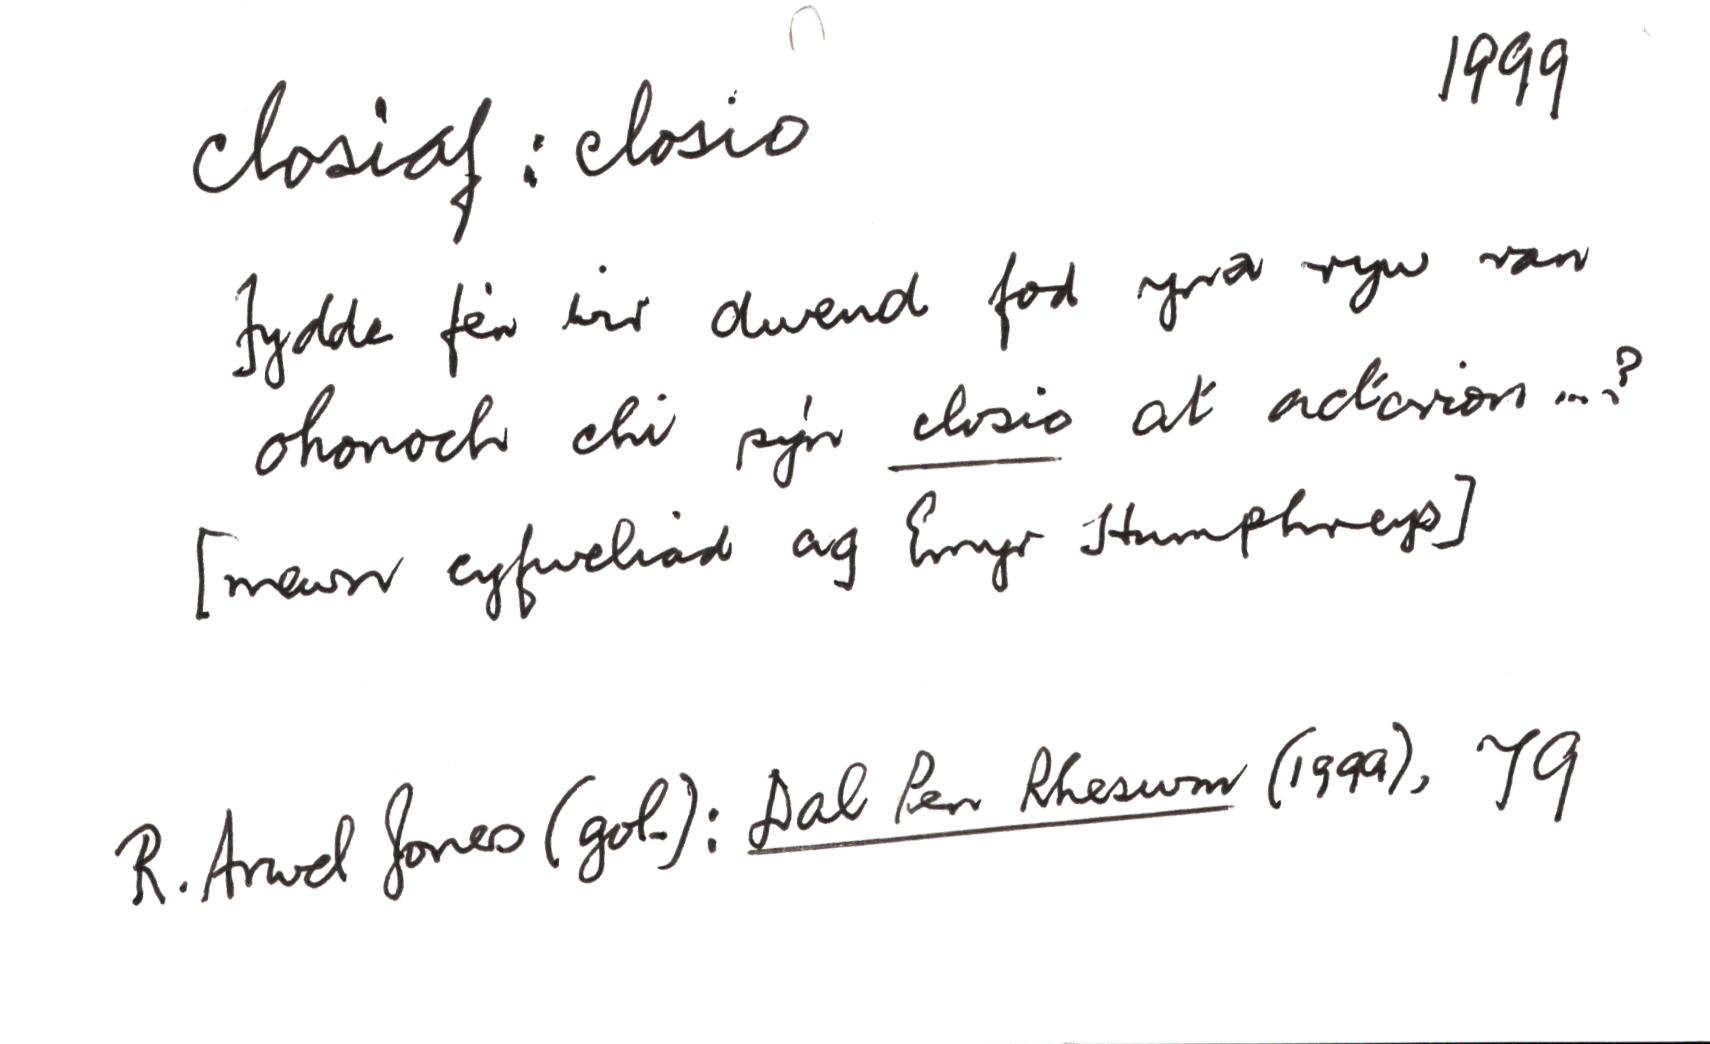 1999
closiaf : closio
Fydde fe'n wir dwend fod yna ryw ran
ohonoch chi sy'n closio at actorion ...?
[mewn cyfweliad ag Emyr Humphreys]
R. Arwel Jones (gol.): Dal Pen Rheswm (1999), 79